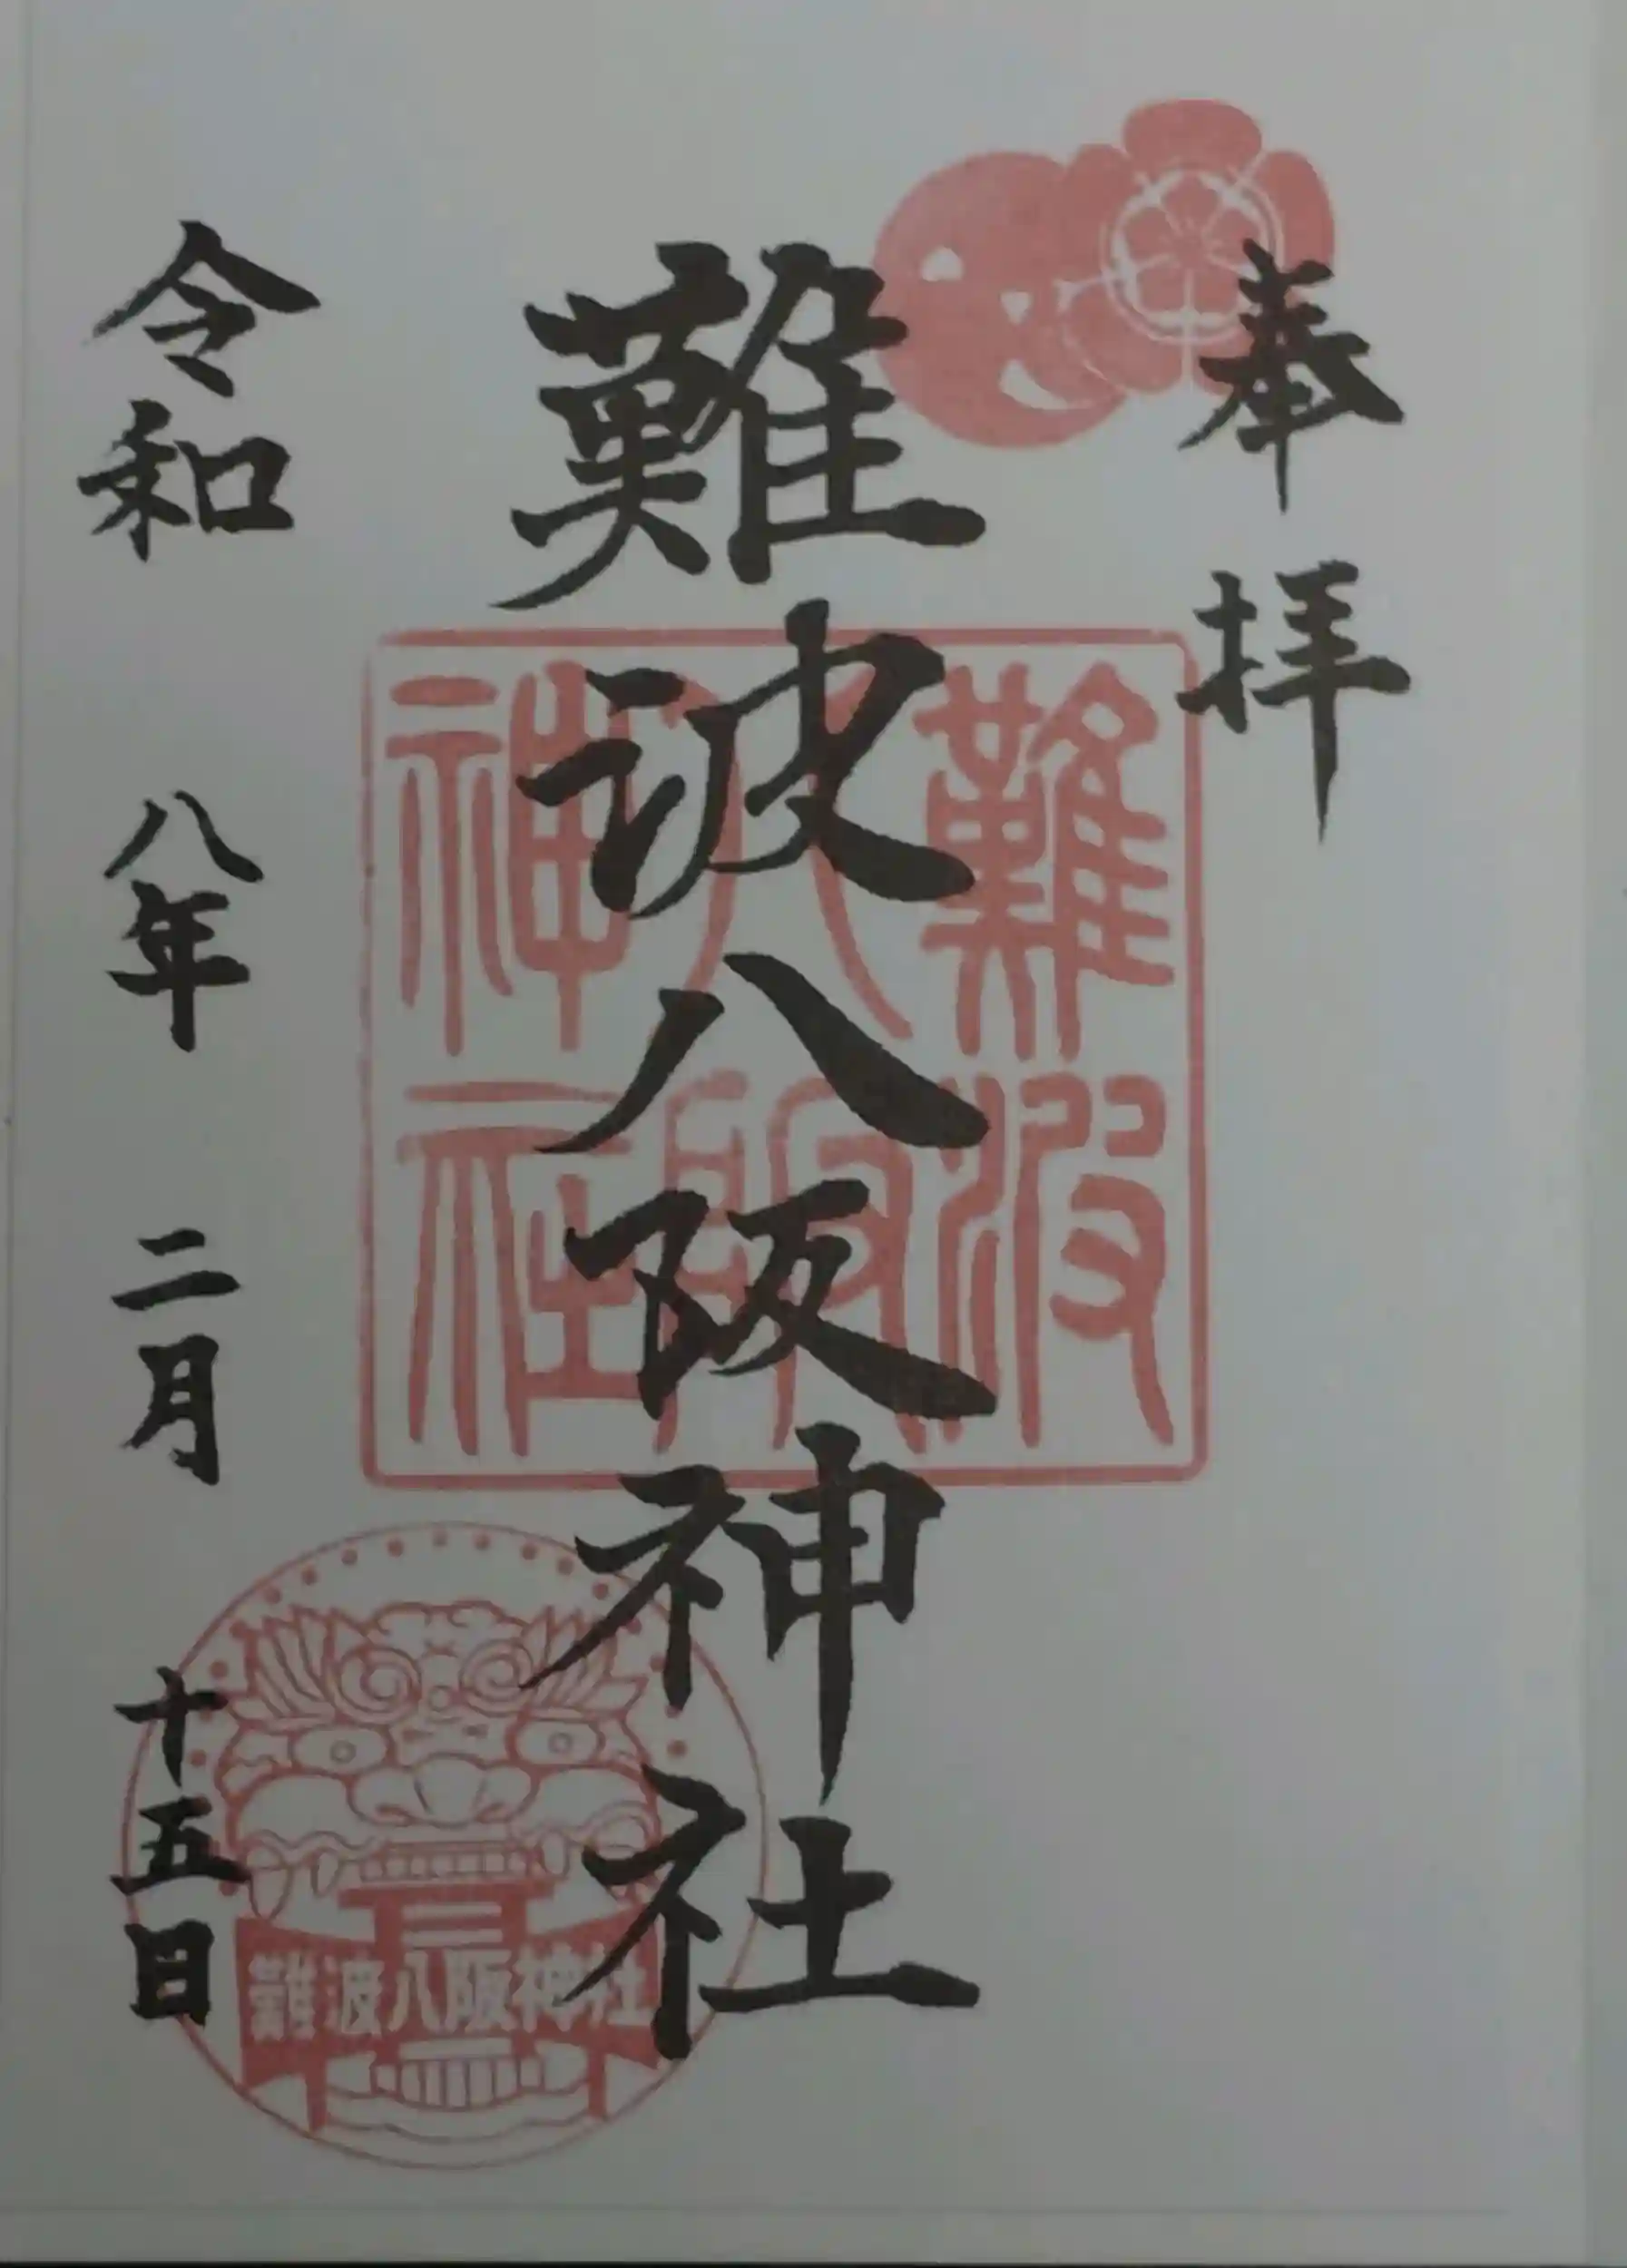 奉拝
難波八阪神社
令和八年二月十五日
難波八阪神社
難波八阪神社